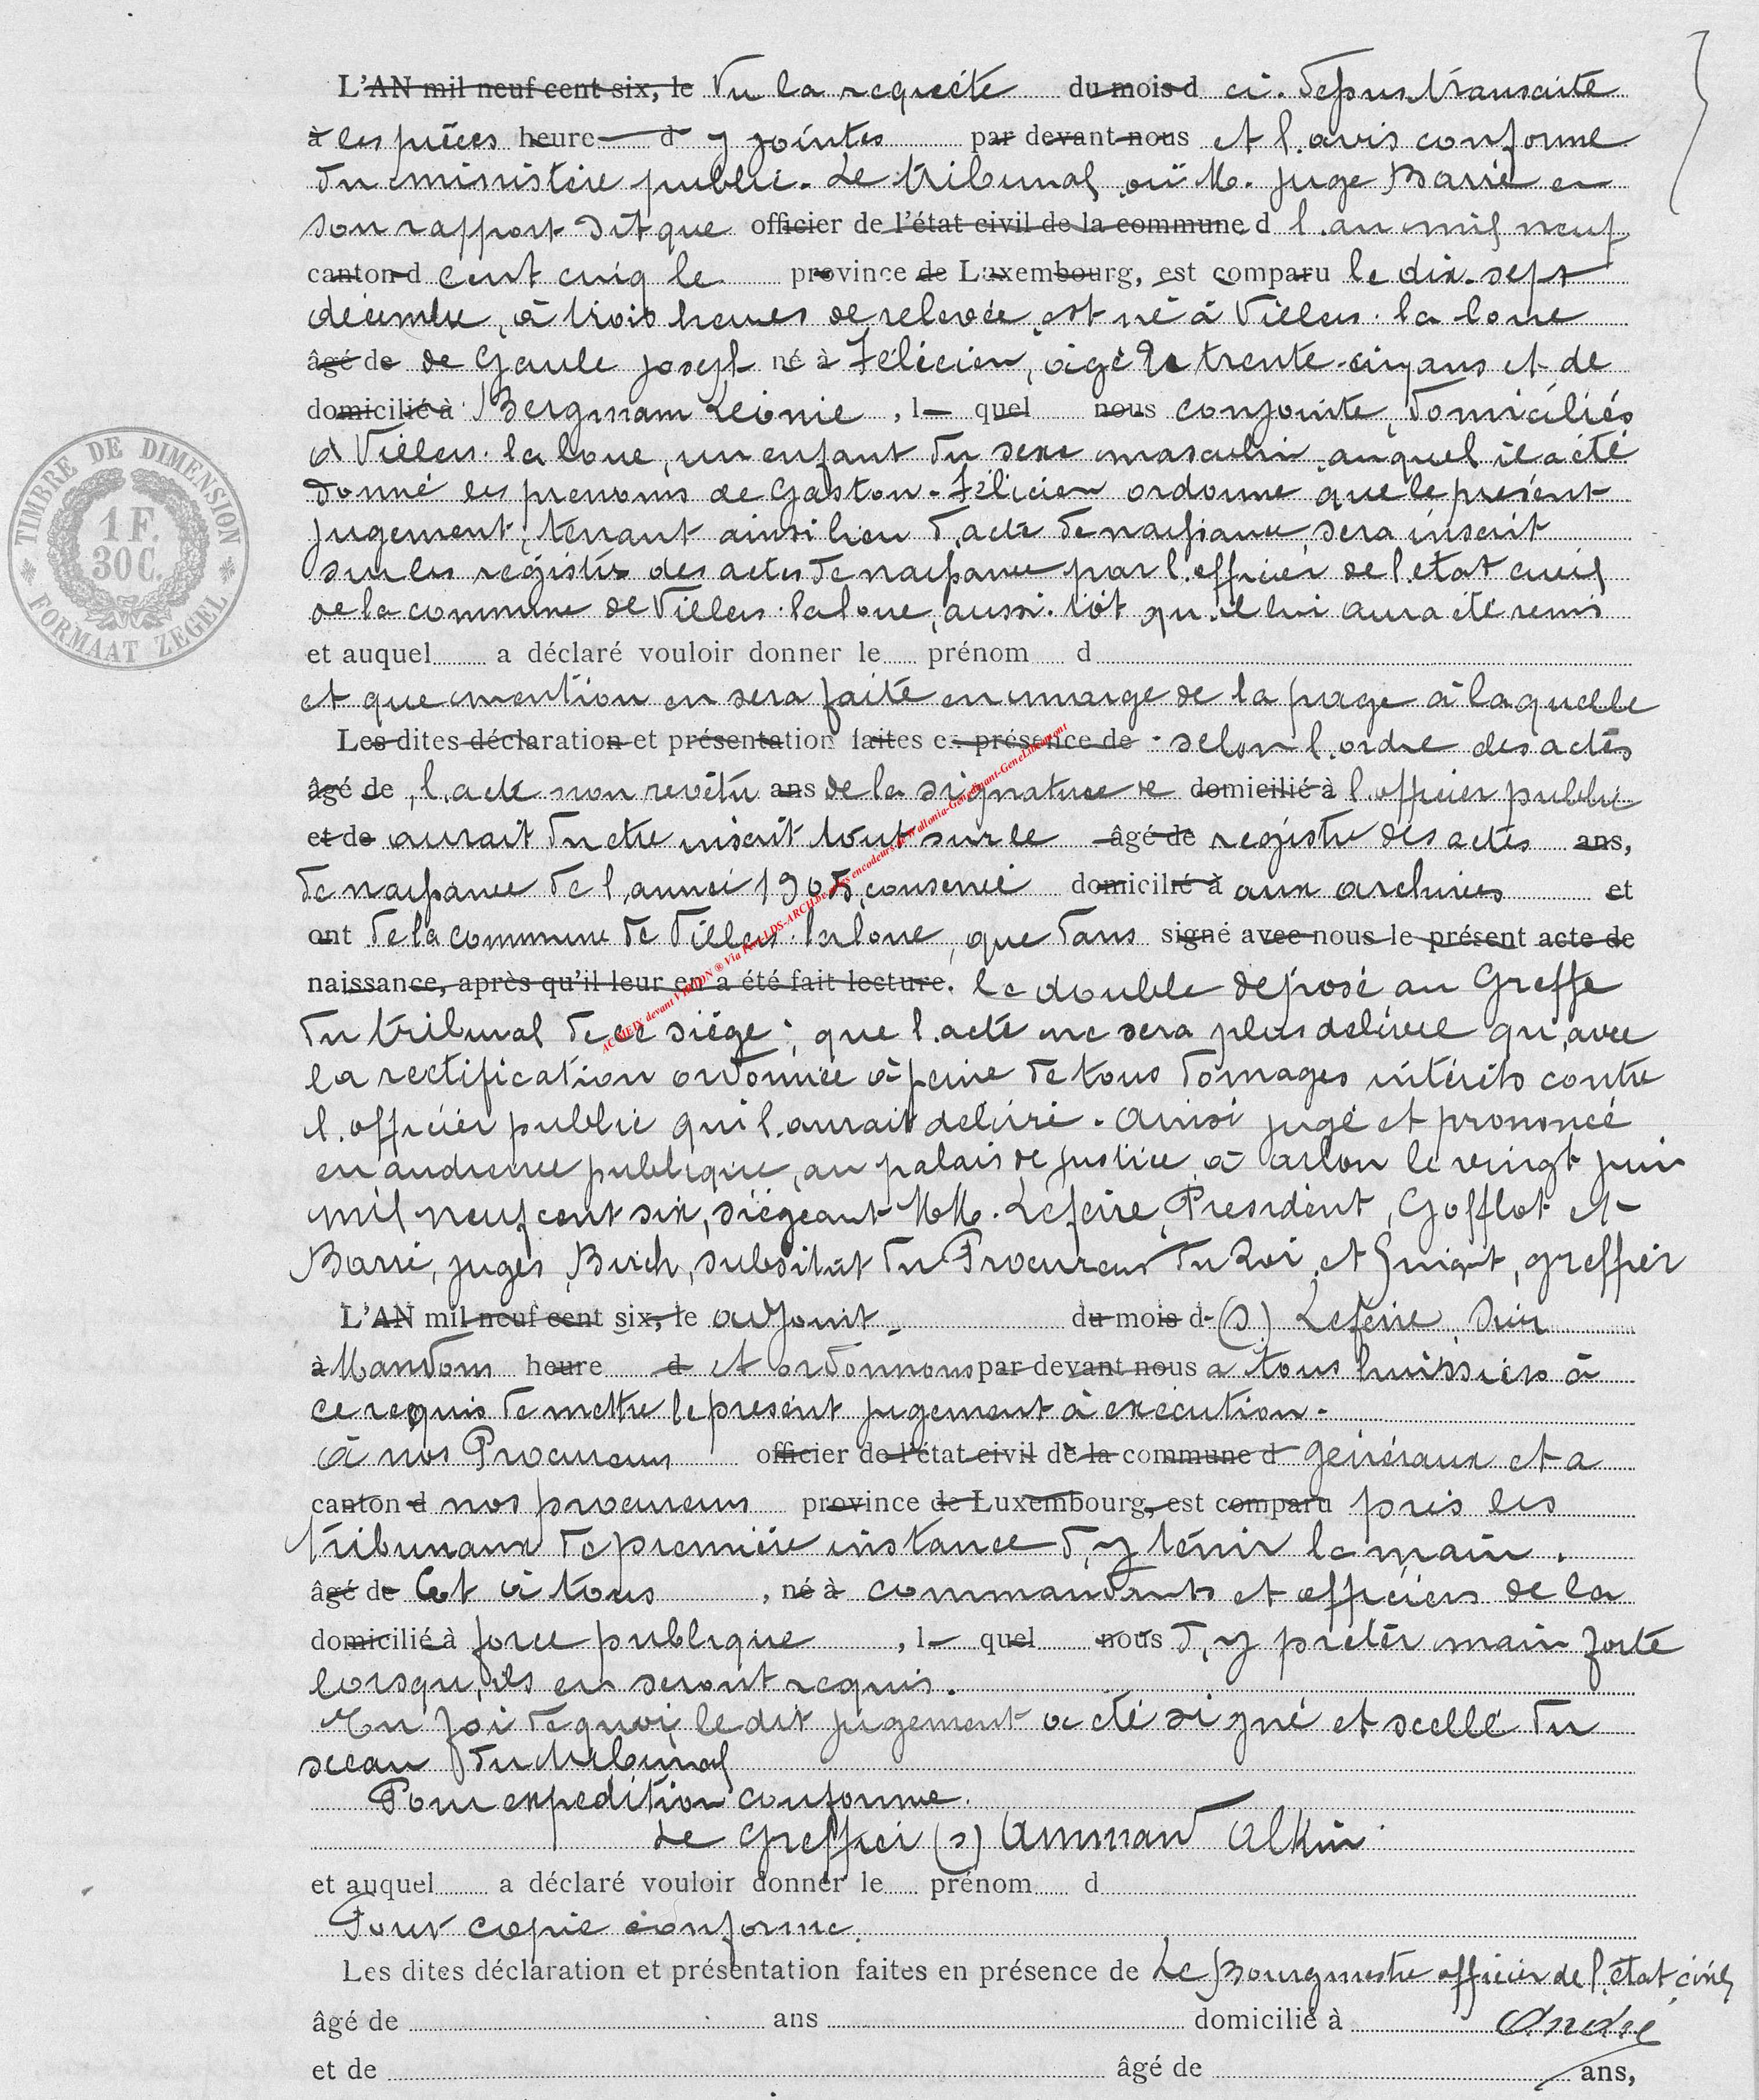 L'AN mil neuf cent six, le Vu la requête du mois d ci-dessus transcrite
à les pièces heure d y jointes par devant nous et l'avis conforme
du ministère public. Le tribunal ouï M. juge Barré en
son rapport dit que officier de l'état civil de la commune d l'an mil neuf
canton d cent cinq le province de Luxembourg, est comparu le dix-sept
décembre, à trois heures de relevée, est né à Villers-la-loue
âgé de de Gaule Joseph né à Félicien, âgé de trente-cinq ans et de
domicilié à Bergmam Léonie , l quel nous conjointe, domiciliés
à Villers-la-loue, un enfant du sexe masculin auquel il a été
donné les prénoms de Gaston-Félicien ordonne que le présent
jugement, tenant ainsi lieu d'acte de naissance, sera inscrit
sur les registres des actes de naissance par l'officier de l'état civil
de la commune de Villers-la loue, aussi-tôt qu'il lui aura été remis
et auquel a déclaré vouloir donner le prénom d
et que mention en sera faite en marge de la page à laquelle
Les dites déclaration et présentation faites en présence de selon l'ordre des actes
âgé de l'acte non revêtu ans de la signature de domicilié à l'officier public
et de aurait du être inscrit tout sur le âgé de registre des actes ans,
de naissance de l'année 1905, conservé domicilié à aux archives et
ont de la commune de Villers-la loue, que dans signé avec nous le présent acte de
naissance, après qu'il leur en a été fait lecture. le double déposé au Greffe
du tribunal de ce siège; que l'acte ne sera plus délivré qu'avec
la rectification ordonnée à peine de tous domages intérêts contre
l'officier public qui l'aurait délivré. Ainsi jugé et prononcé
en audience publique, au palais de justice à Arlon le vingt juin
mil neuf cent six, siégeant MM. Lefeire, Président, Gofflot et
Barré, juges, Burch, subsitut du Procureur du Roi, et , greffier
L'AN mil neuf cent six, le adjoint. du mois d (s) Lefeire,
à Mandons heure d et ordonnons par devant nous a tous huissiers à
ce requis de mettre le présent jugement à exécution.
à nos Procureurs officier de l'état civil de la commune d généraux et a
canton d nos procureurs province de Luxembourg, est comparu près les
tribunaux de première instance d'y tenir la main.
âgé de Et à tous , né à commandants et officiers de la
domicilié à force publique , l quel nous d'y prêter main forte
lorsqu'ils en seront requis.
En foi de quoi, le dit jugement a été signé et scellé du
sceau du tribunal
Pour expédition conforme.
Le Greffier (s) Amman Alkin
et auquel a déclaré vouloir donner le prénom d
Pour copie conforme.
Les dites déclaration et présentation faites en présence de Le Bourgmestre officier de l'état civil
âgé de ans domicilié à André
et de âgé de ans,
TIMBRE DE DIMENSION
1 F.
30 C.
FORMAAT ZEGEL